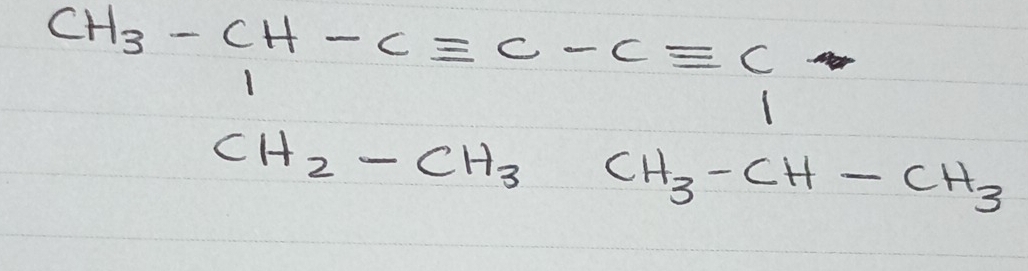 CH₃ - CH - C ≡ C - C ≡ C
| |
CH₂ - CH₃ CH₃ - CH - CH₃